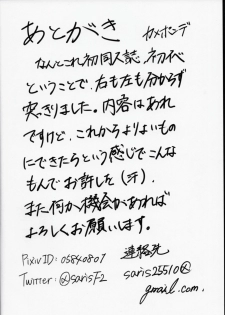 あとがき カメホンデ
なんとこれ初同人誌、初イベ
ということで、右も左も分からず
突っきりました。内容はあれ
ですけど、これからよりよいもの
にできたらという感じでこんな
もんでお許し(汗)
また何か機会があれば
よろしくお願いします。
Pixiv ID: 05840807
Twitter: @saris72
連絡先
saris25510@
gmail.com.